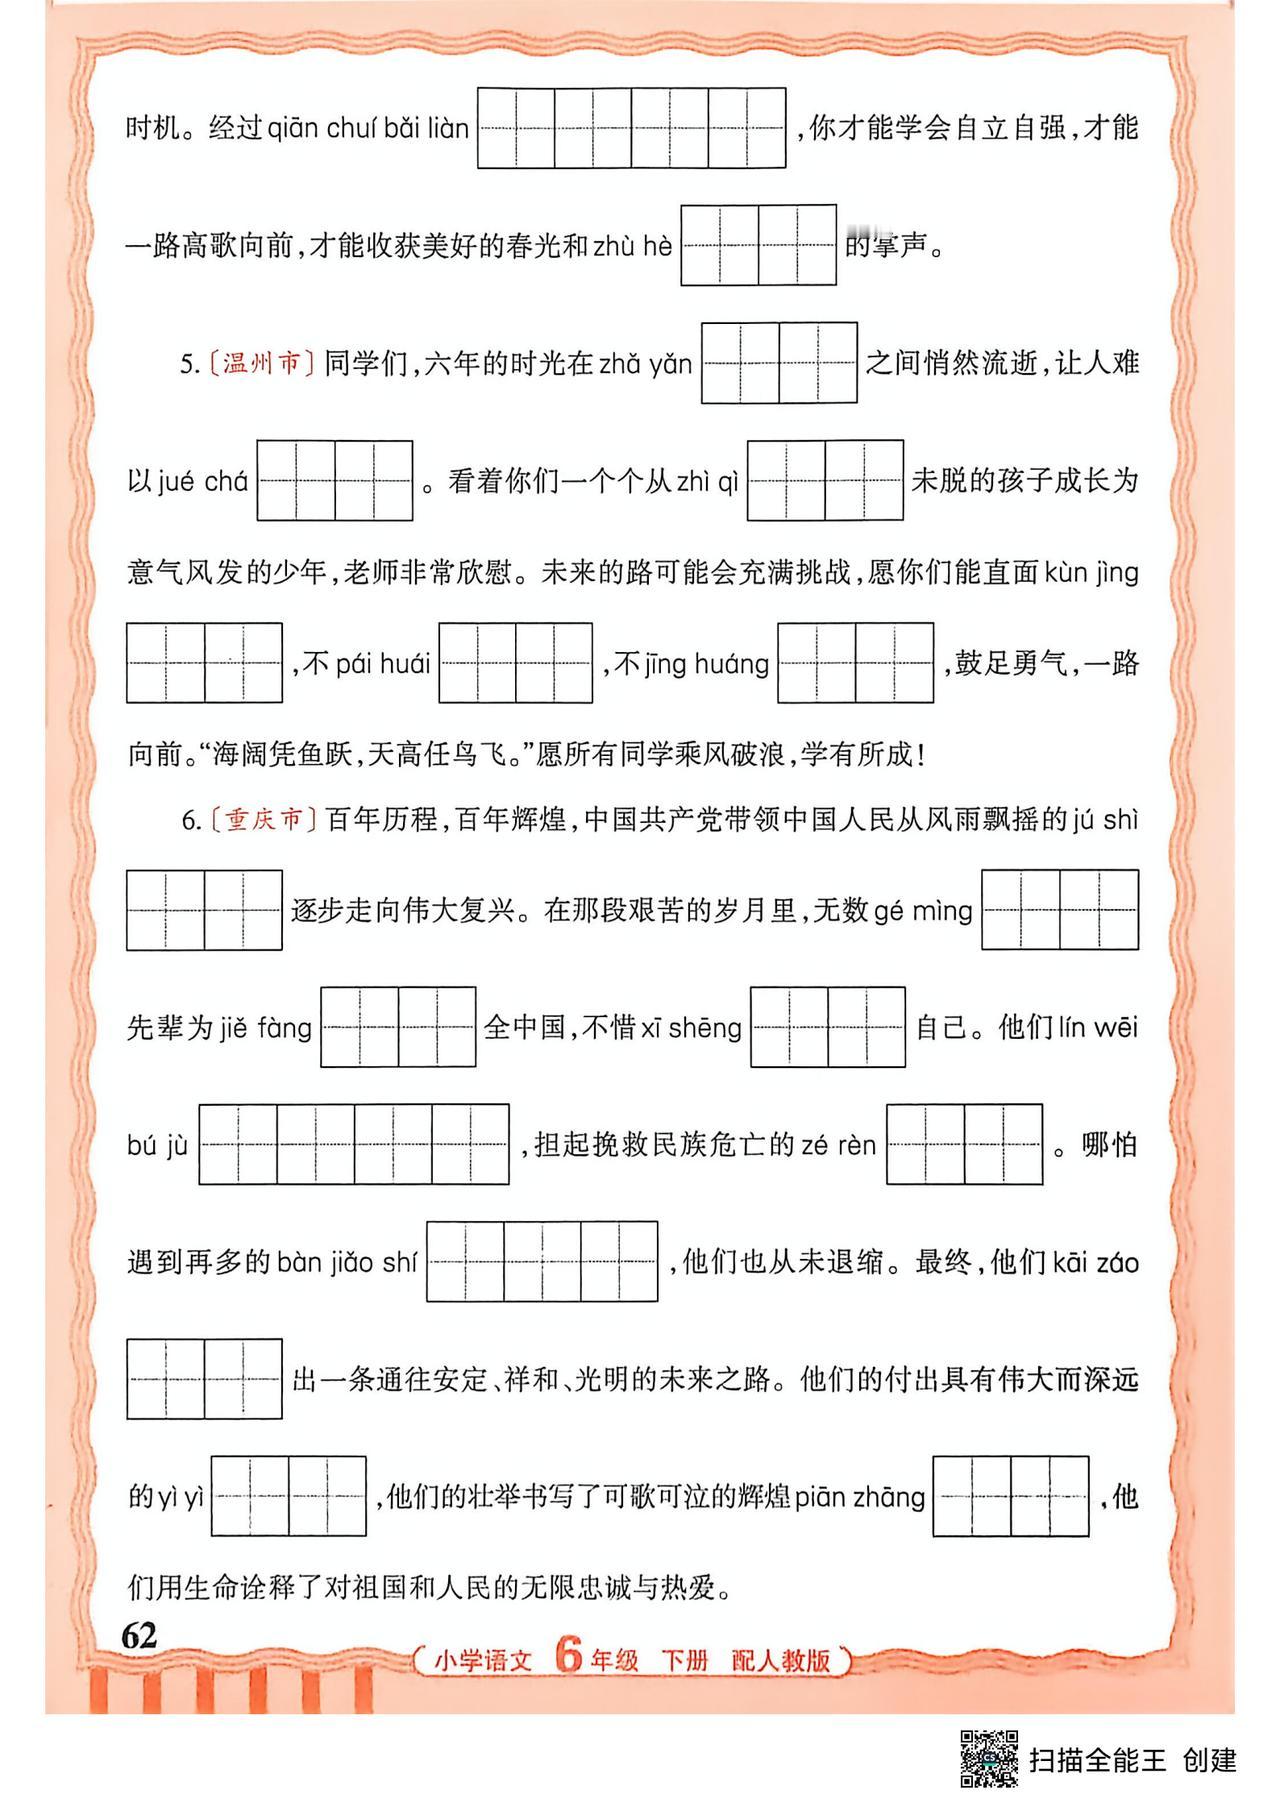 时机。经过qiān chuí bǎi liàn ,你才能学会自立自强,才能
一路高歌向前,才能收获美好的春光和zhù hè 的掌声。
5.〔温州市〕同学们,六年的时光在zhǎ yǎn 之间悄然流逝,让人难
以jué chá 。看着你们一个个从zhì qì 未脱的孩子成长为
意气风发的少年,老师非常欣慰。未来的路可能会充满挑战,愿你们能直面kùn jìng
,不pái huái ,不jīng huáng ,鼓足勇气,一路
向前。“海阔凭鱼跃,天高任鸟飞。”愿所有同学乘风破浪,学有所成!
6.〔重庆市〕百年历程,百年辉煌,中国共产党带领中国人民从风雨飘摇的jú shì
逐步走向伟大复兴。在那段艰苦的岁月里,无数gé mìng
先辈为jiě fàng 全中国,不惜xī shēng 自己。他们lín wēi
bú jù ,担起挽救民族危亡的zé rèn 。哪怕
遇到再多的bàn jiǎo shí ,他们也从未退缩。最终,他们kāi záo
出一条通往安定、祥和、光明的未来之路。他们的付出具有伟大而深远
的yì yì ,他们的壮举书写了可歌可泣的辉煌piān zhāng ,他
们用生命诠释了对祖国和人民的无限忠诚与热爱。
62
小学语文 6年级 下册 配人教版
CS
扫描全能王 创建